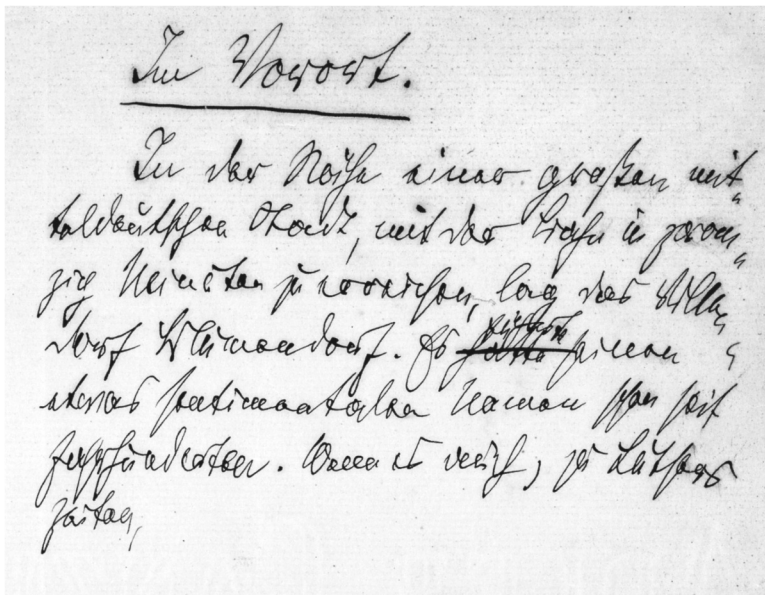 Im Vorort.
In der Nähe einer großen mit„
teldeutschen Stadt, mit der Bahn in zwan„
zig Minuten zu erreichen, lag das Villen„
dorf Blumendorf. Es führte seinen
etwas sentimentalen Namen schon seit
Jahrhunderten. Wenn es auch, zu Luthers
Zeiten,